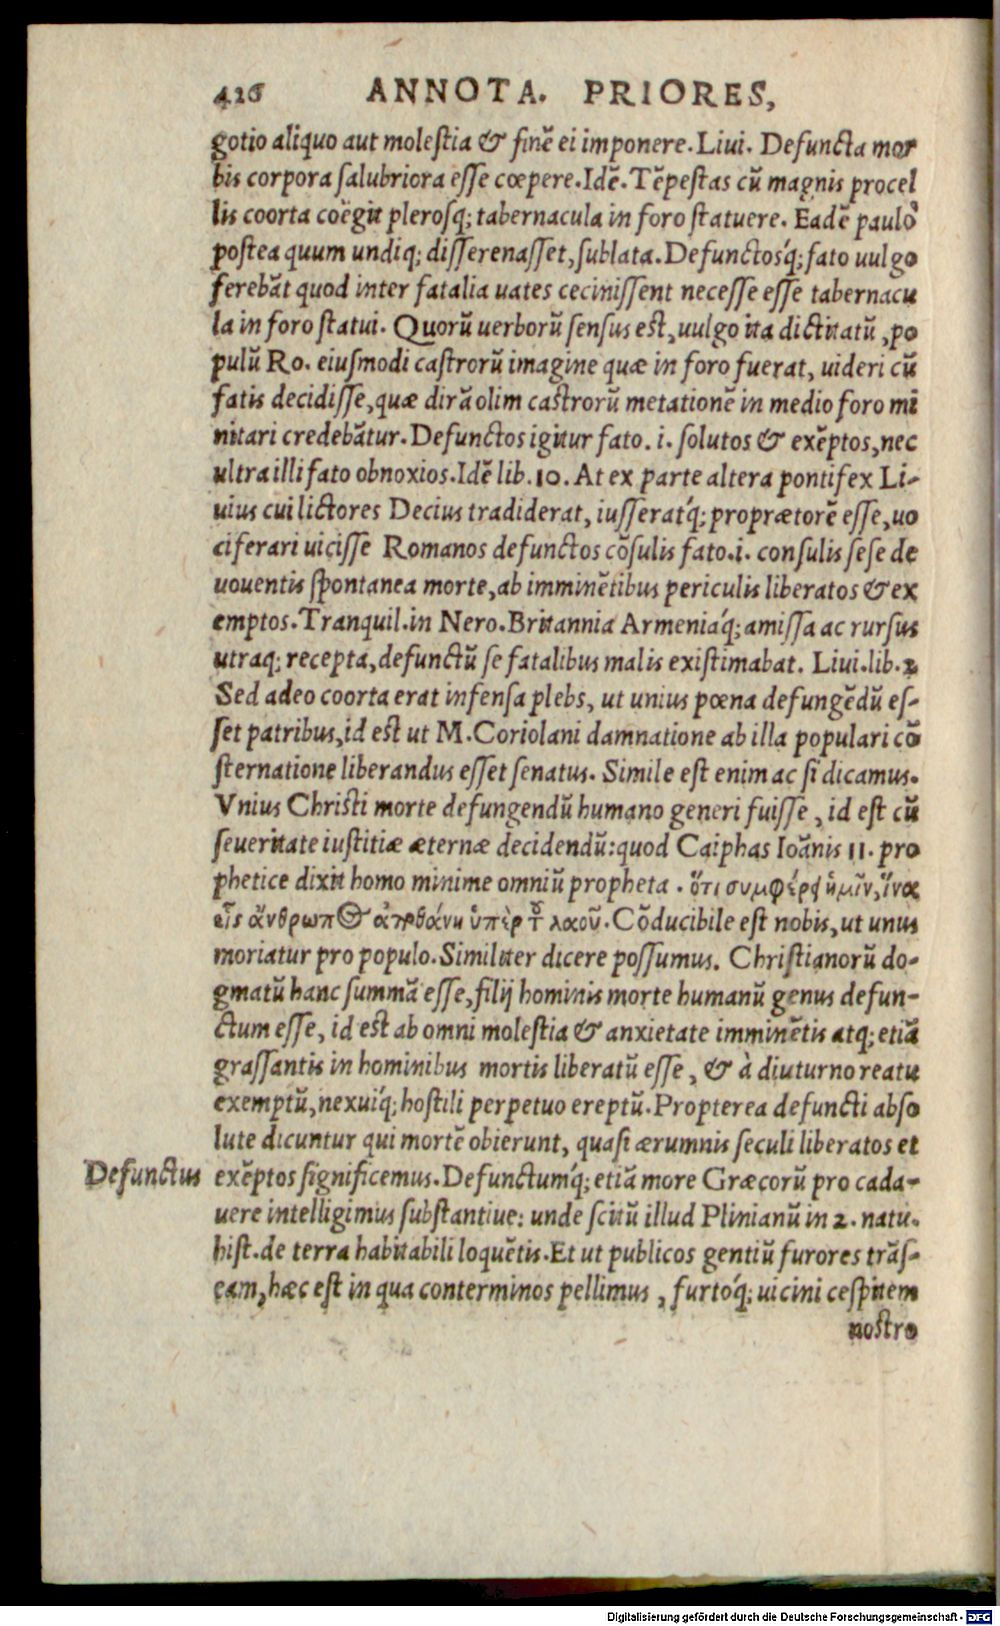 426 ANNOTA. PRIORES,
gotio aliquo aut molestia & finē ei imponere. Liui. Defuncta mor
bis corpora salubriora esse cœpere. Idē. Tēpestas cū magnis procel
lis coorta coëgit plerosq; tabernacula in foro statuere. Eadē paulò
postea quum undiq; disserenasset, sublata. Defunctosq́; fato uulgo
ferebāt quod inter fatalia uates cecinissent necesse esse tabernacu
la in foro statui. Quorū uerborū sensus est, uulgo ita dictitatū, po
pulū Ro. eiusmodi castrorū imagine quæ in foro fuerat, uideri cū
fatis decidisse, quæ dirā olim castrorū metationē in medio foro mi
nitari credebātur. Defunctos igitur fato .i. solutos & exēptos, nec
ultra illi fato obnoxios. Idē lib. 10. At ex parte altera pontifex Li-
uius cui lictores Decius tradiderat, iusseratq́; proprætorē esse, uo
ciferari uicisse Romanos defunctos cōsulis fato .i. consulis sese de
uouentis spontanea morte, ab imminētibus periculis liberatos & ex
emptos. Tranquil. in Nero. Britannia Armeniaq́; amissa ac rursus
utraq; recepta, defunctū se fatalibus malis existimabat. Liui. lib. 2
Sed adeo coorta erat infensa plebs, ut unius pœna defungēdū es-
set patribus, id est ut M. Coriolani damnatione ab illa populari cō
sternatione liberandus esset senatus. Simile est enim ac si dicamus.
Vnius Christi morte defungendū humano generi fuisse, id est cū
seueritate iustitiæ æternæ decidendū: quod Caiphas Ioānis 11. pro
phetice dixit homo minime omniū propheta. ὅτι συμφέρει ἡμῖν, ἵνα
εἷς ἄνθρωπος ἀποθάνη ὑπὲρ τοῦ λαοῦ. Cōducibile est nobis, ut unus
moriatur pro populo. Similiter dicere possumus. Christianorū do-
gmatū hanc summā esse, filij hominis morte humanū genus defun-
ctum esse, id est ab omni molestia & anxietate imminētis atq; etiā
grassantis in hominibus mortis liberatū esse, & à diuturno reatu
exemptū, nexuiq́; hostili perpetuo ereptū. Propterea defuncti abso
lute dicuntur qui mortē obierunt, quasi ærumnis seculi liberatos et
Defunctus exēptos significemus. Defunctumq́; etiā more Græcorū pro cada-
uere intelligimus substantiue: unde scitū illud Plinianū in 2. natu.
hist. de terra habitabili loquētis. Et ut publicos gentiū furores trās-
eam, hæc est in qua conterminos pellimus, furtoq́; uicini cespitem
nostro
Digitalisierung gefördert durch die Deutsche Forschungsgemeinschaft - DFG